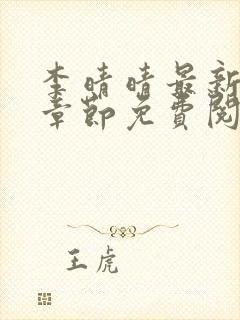 李晴晴最新
章節免費閱
王虎